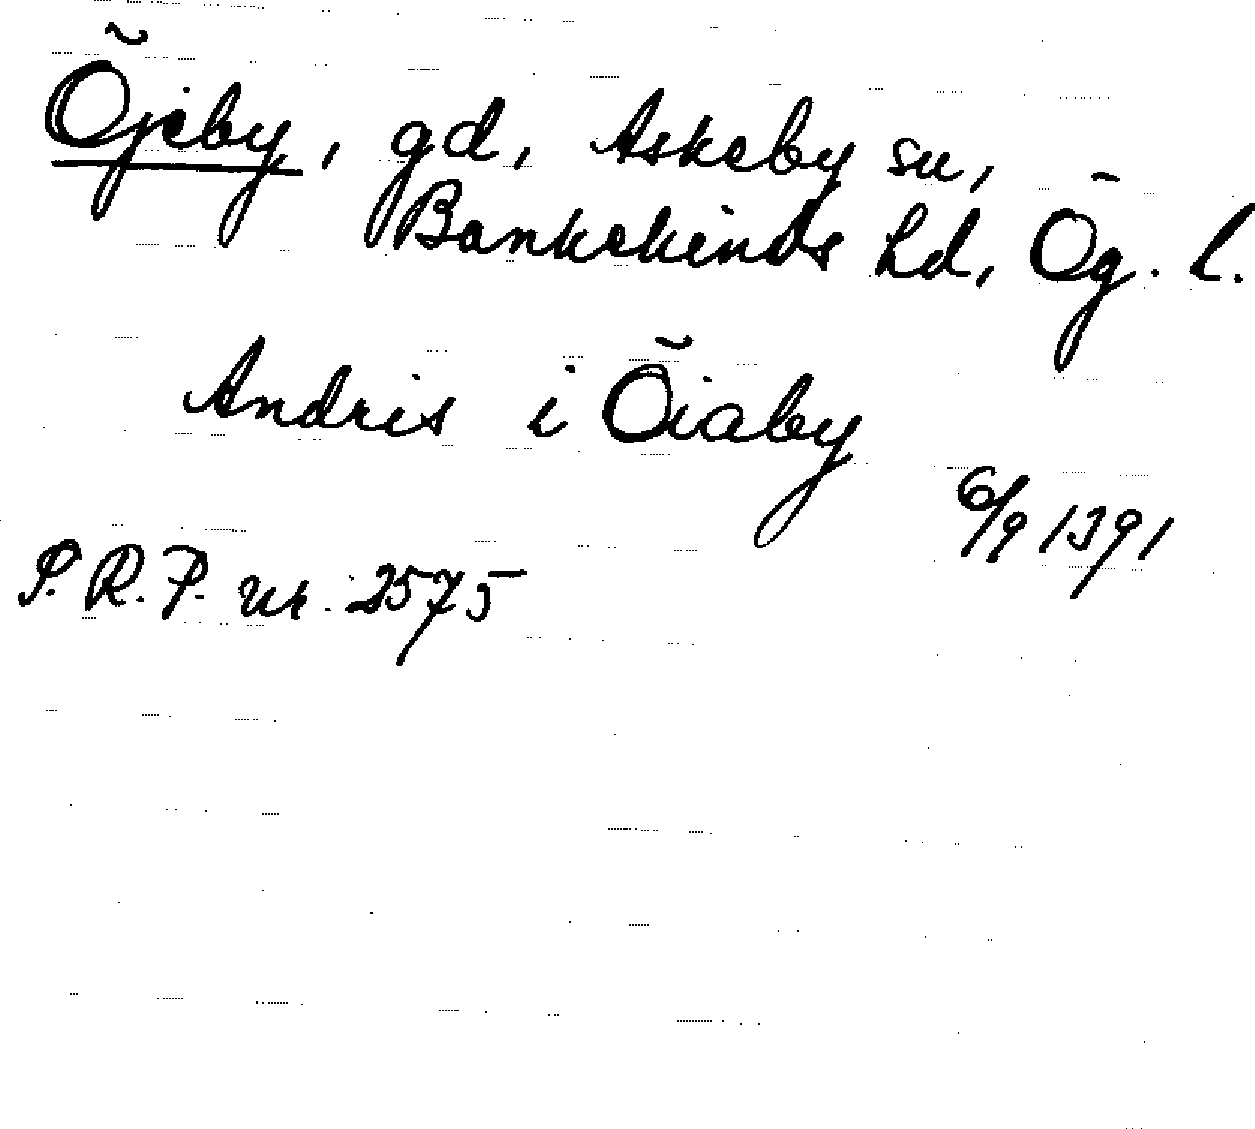 Öjeby, gd, Askeby sn,
Bankekinds hd, Ög. l.
Andris i Öiaby
6/9 1391
S.R.P. nr. 2575